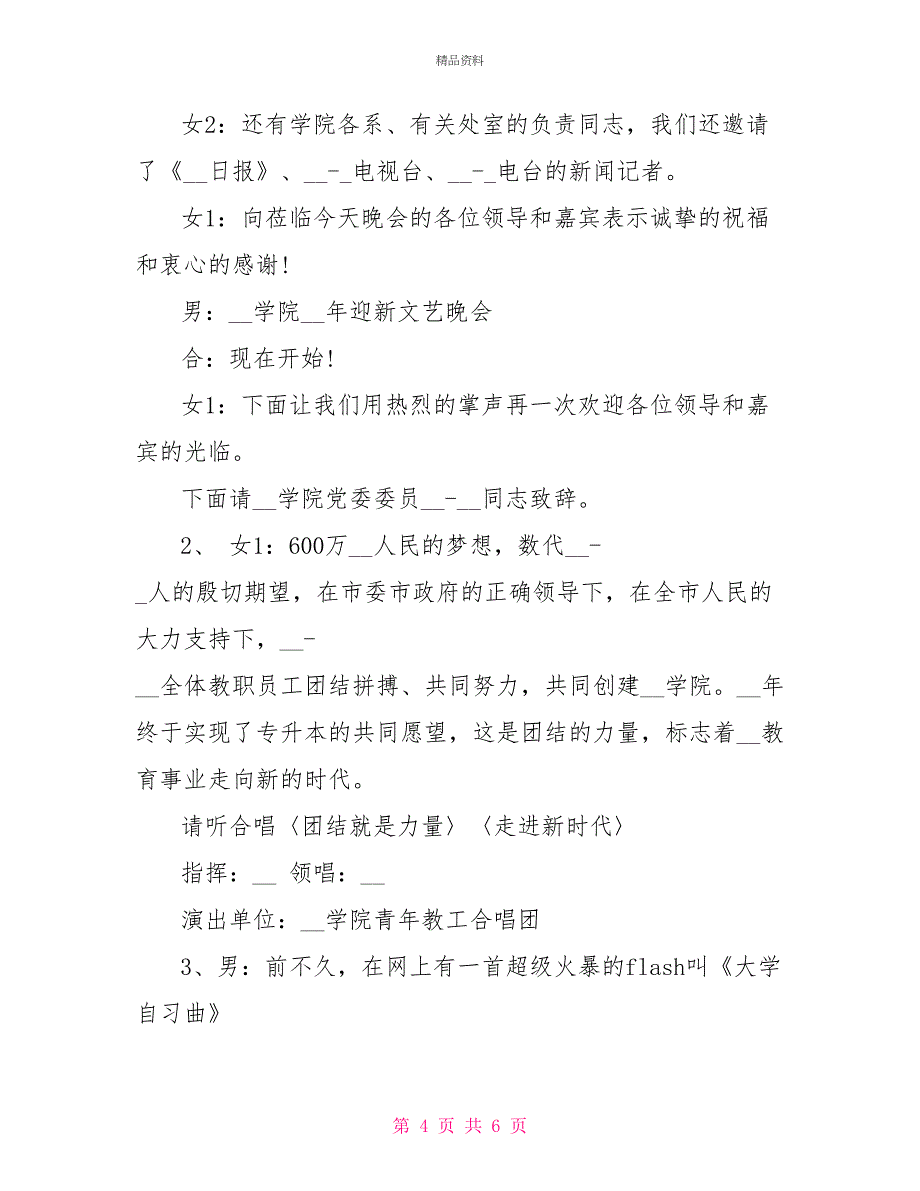 精品资料
女2：还有学院各系、有关处室的负责同志，我们还邀请
了《__日报》、__-_电视台、__-_电台的新闻记者。
女1：向莅临今天晚会的各位领导和嘉宾表示诚挚的祝福
和衷心的感谢!
男：__学院__年迎新文艺晚会
合：现在开始!
女1：下面让我们用热烈的掌声再一次欢迎各位领导和嘉
宾的光临。
下面请__学院党委委员__-__同志致辞。
2、 女1：600万__人民的梦想，数代__-
_人的殷切期望，在市委市政府的正确领导下，在全市人民的
大力支持下，__-
__全体教职员工团结拼搏、共同努力，共同创建__学院。__年
终于实现了专升本的共同愿望，这是团结的力量，标志着__教
育事业走向新的时代。
请听合唱〈团结就是力量〉〈走进新时代〉
指挥：__ 领唱：__
演出单位：__学院青年教工合唱团
3、男：前不久，在网上有一首超级火暴的flash叫《大学
自习曲》
第 4 页 共 6 页